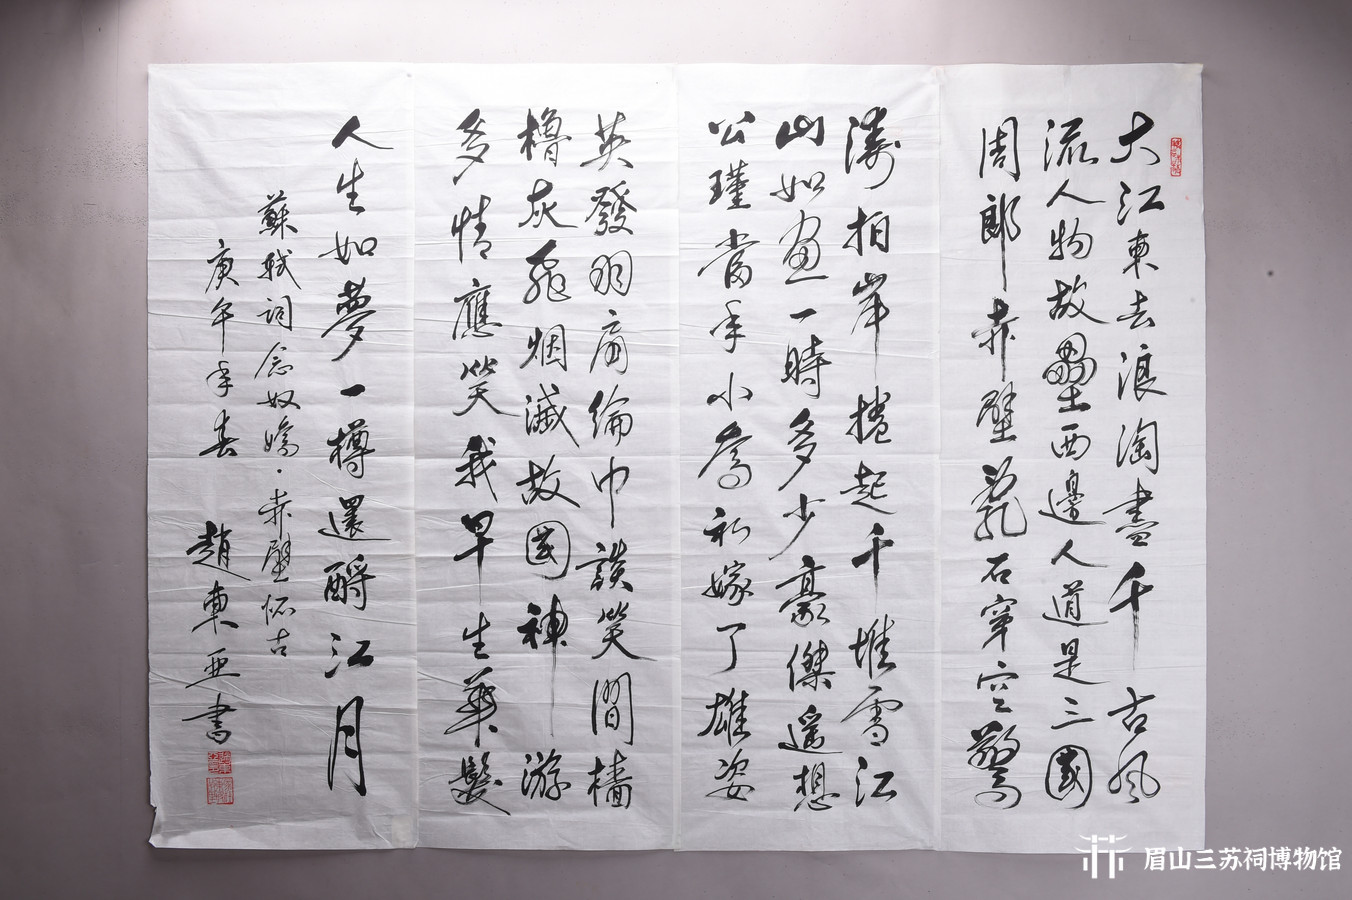 大江東去浪淘盡千古風
流人物故壘西邊人道是三國
周郎赤壁亂石穿空驚
濤拍岸捲起千堆雪江
山如畫一時多少豪傑遥想
公瑾當年小喬初嫁了雄姿
英發羽扇綸巾談笑間檣
櫓灰飛烟滅故國神游
多情應笑我早生華髮
人生如夢一樽還酹江月
蘇軾詞念奴嬌·赤壁怀古
庚午年春 趙東亚書
眉山三苏祠博物馆